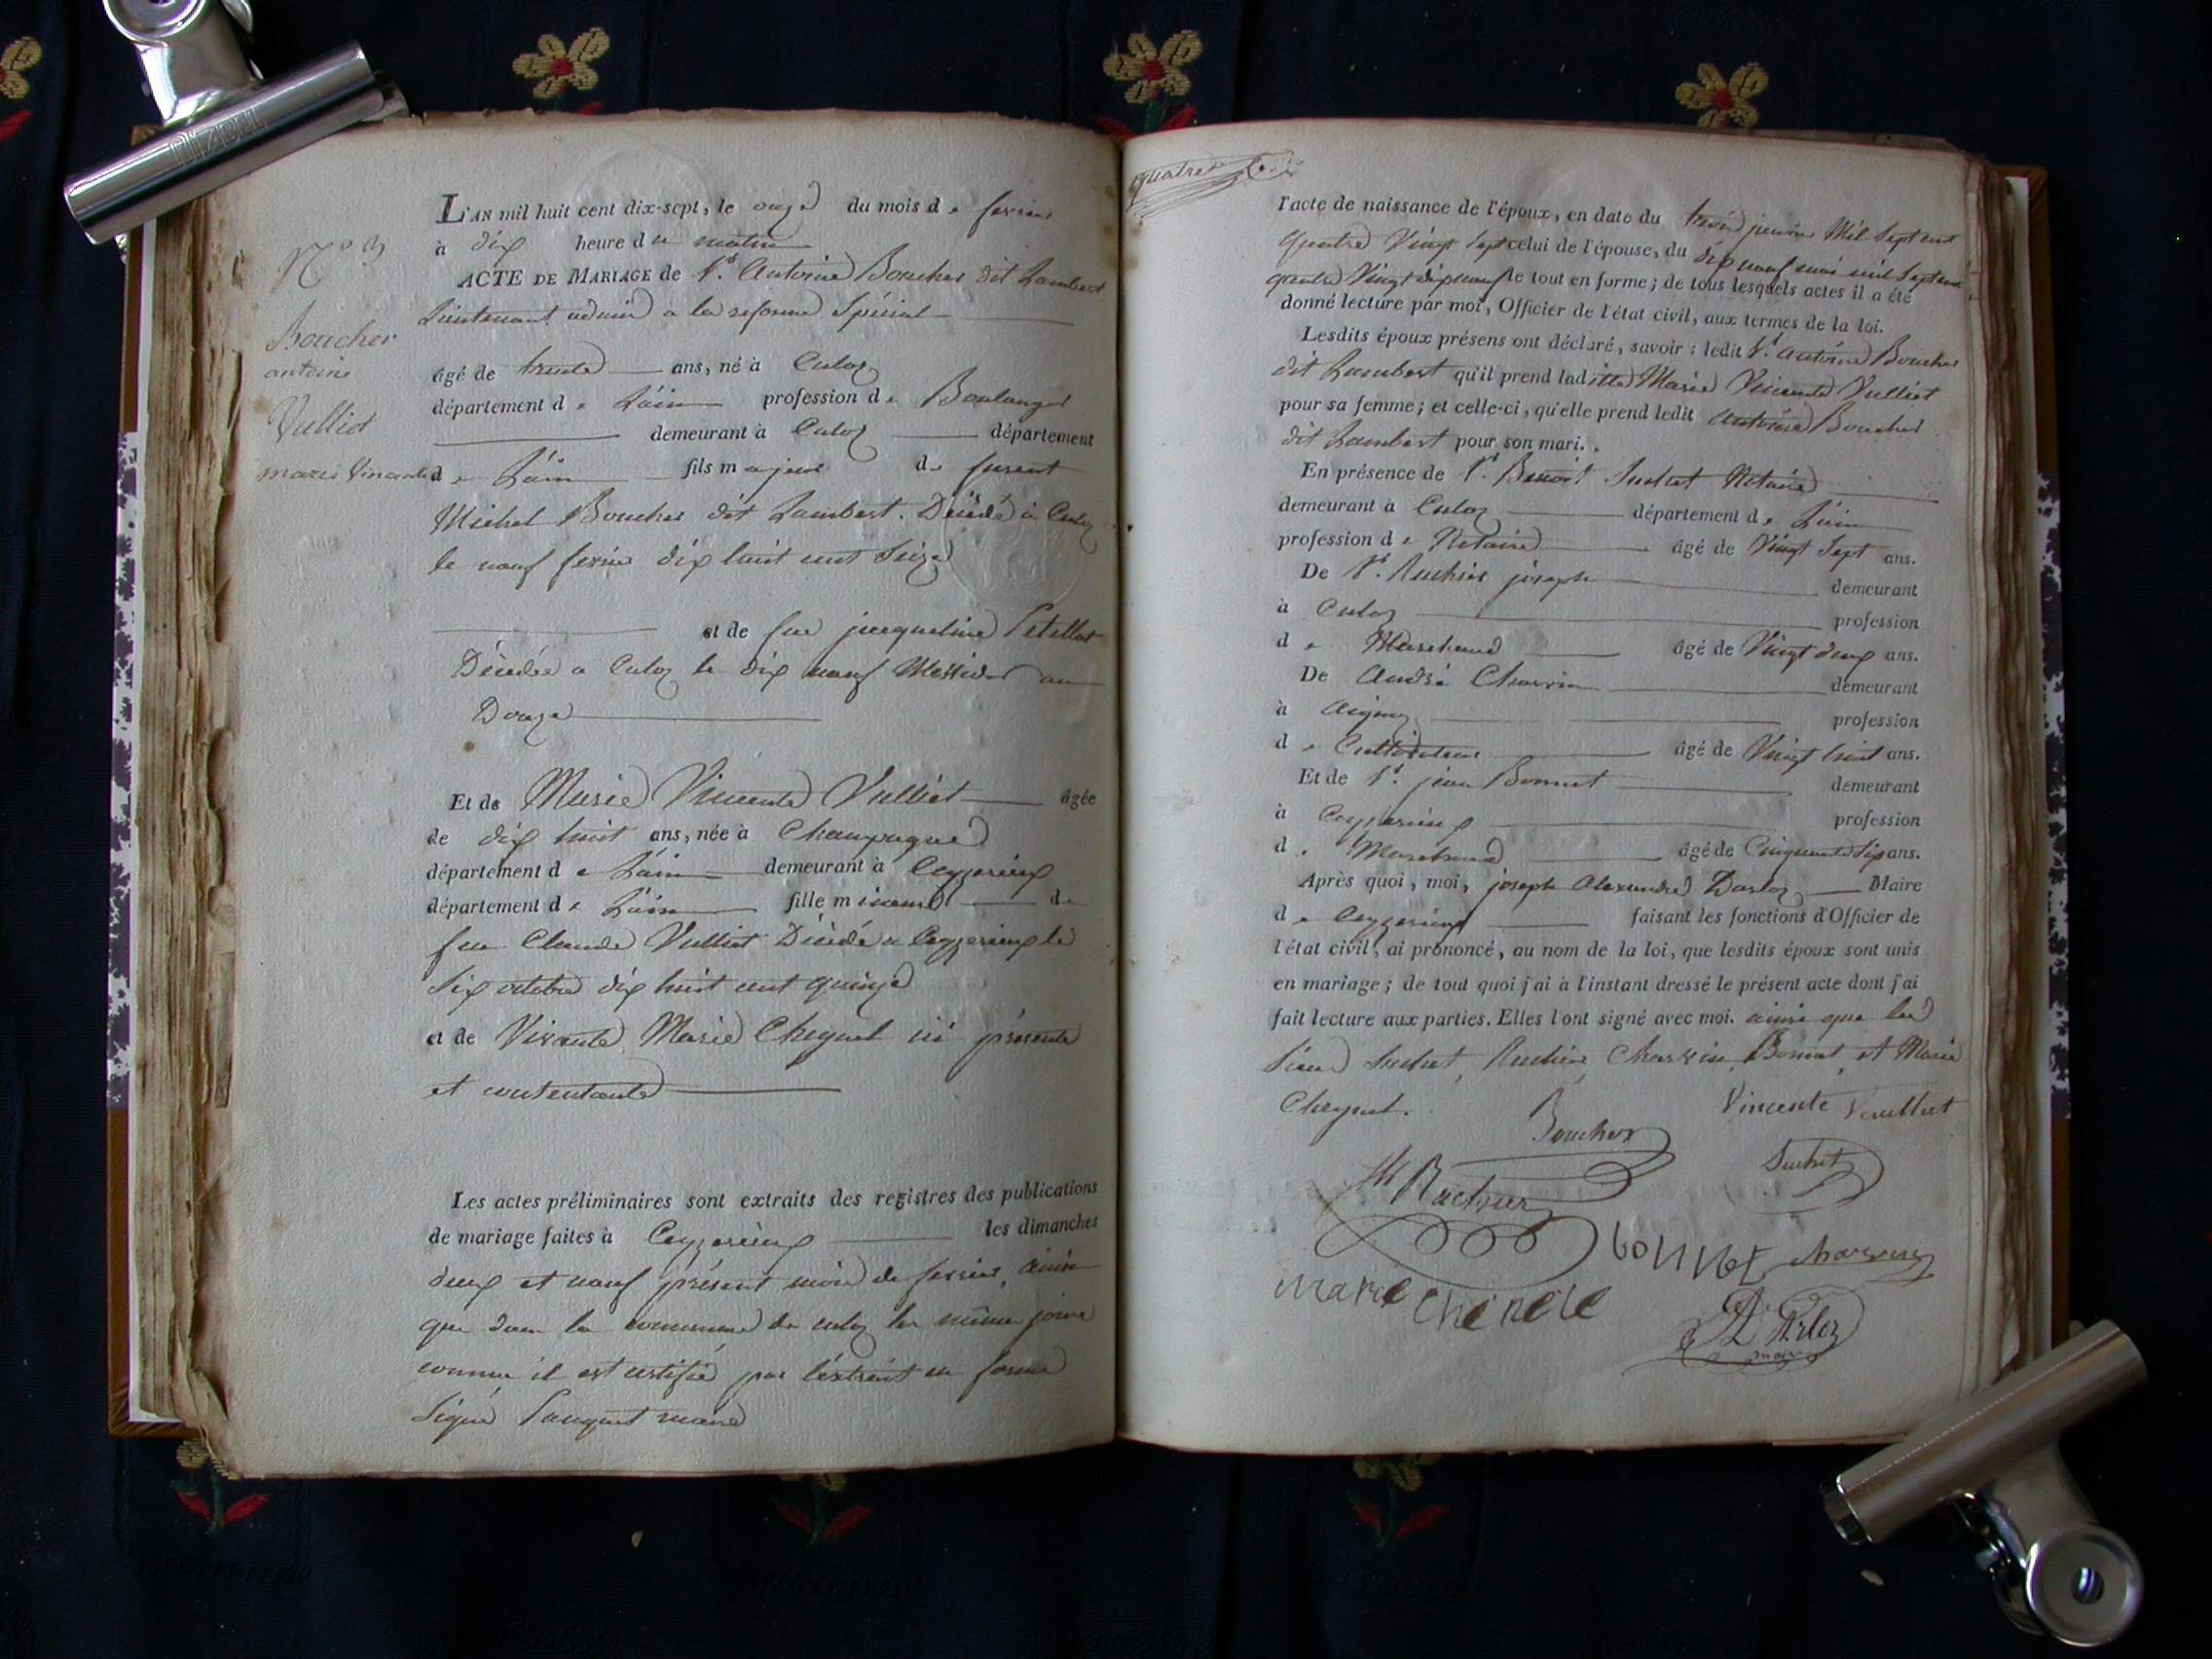 N° 3
Boucher
antoine
Vulliot
marie Vincente
L'AN mil huit cent dix-sept, le onze du mois de fevrier
à dix heure du matin
ACTE DE MARIAGE de Sr. Antoine Boucher dit Lambert
Lieutenant admis a la reforme Spécial
âgé de trente ans, né à Culoz
département de L'ain profession de Boulanger
demeurant à Culoz département
de L'ain fils majeur de furent
Michel Boucher dit Lambert. Décédé à Culoz
le neuf fevrier dix huit cent Seize
et de fue jacqueline
Décédée a Culoz le dix neuf Messidor an
Douze
Et de Marie Vincente Vulliot âgée
de dix huit ans, née à Champagne
département de L'ain demeurant à Ceyzerieux
département de L'ain fille mineure de
feu Claude Vulliot Décédé a Ceyzerieux le
Six octobre dix huit cent quinze
et de Vivante Marie Cheynel ici présente
et consentante
Les actes préliminaires sont extraits des registres des publications
de mariage faites à Ceyzerieux les dimanches
deux et neuf présent mois de fevrier, ainsi
que dans la commune de culoz les même jours
comme il est certifié par l'extrait en forme
Signé Pauquet maire
quatre
l'acte de naissance de l'époux, en date du trois janvier Mil Sept cent
quatre Vingt Sept celui de l'épouse, du dix neuf mai mil Sept cent
quatre Vingt dix neuf le tout en forme; de tous lesquels actes il a été
donné lecture par moi, Officier de l'état civil, aux termes de la loi.
Lesdits époux présens ont déclaré, savoir : ledit Sr. antoine Boucher
dit Lambert qu'il prend laditte Marie Vincente Vulliot
pour sa femme; et celle-ci, qu'elle prend ledit Antoine Boucher
dit Lambert pour son mari.
En présence de Sr. Benoit Suchet Notaire
demeurant à Culoz département de L'ain
profession de Notaire âgé de Vingt Sept ans.
De Sr. Ruchier joseph demeurant
à Culoz profession
de Marchand âgé de Vingt deux ans.
De André Charvin demeurant
à profession
de Cultivateur âgé de Vingt huit ans.
Et de Sr. jean Bonnet demeurant
à Ceyzerieux profession
de Marchand âgé de Cinquante Six ans.
Après quoi, moi, joseph Alexandre Maire
de Ceyzerieux faisant les fonctions d'Officier de
l'état civil, ai prononcé, au nom de la loi, que lesdits époux sont unis
en mariage; de tout quoi j'ai à l'instant dressé le présent acte dont j'ai
fait lecture aux parties. Elles l'ont signé avec moi. ainsi que les
Sieurs Suchet, Ruchier, Charvin, Bonnet, et Marie
Cheynel.
Vincente Vuilliot
Boucher
Suchet
Ruchier
bonnet charvin
marie chenele
maire